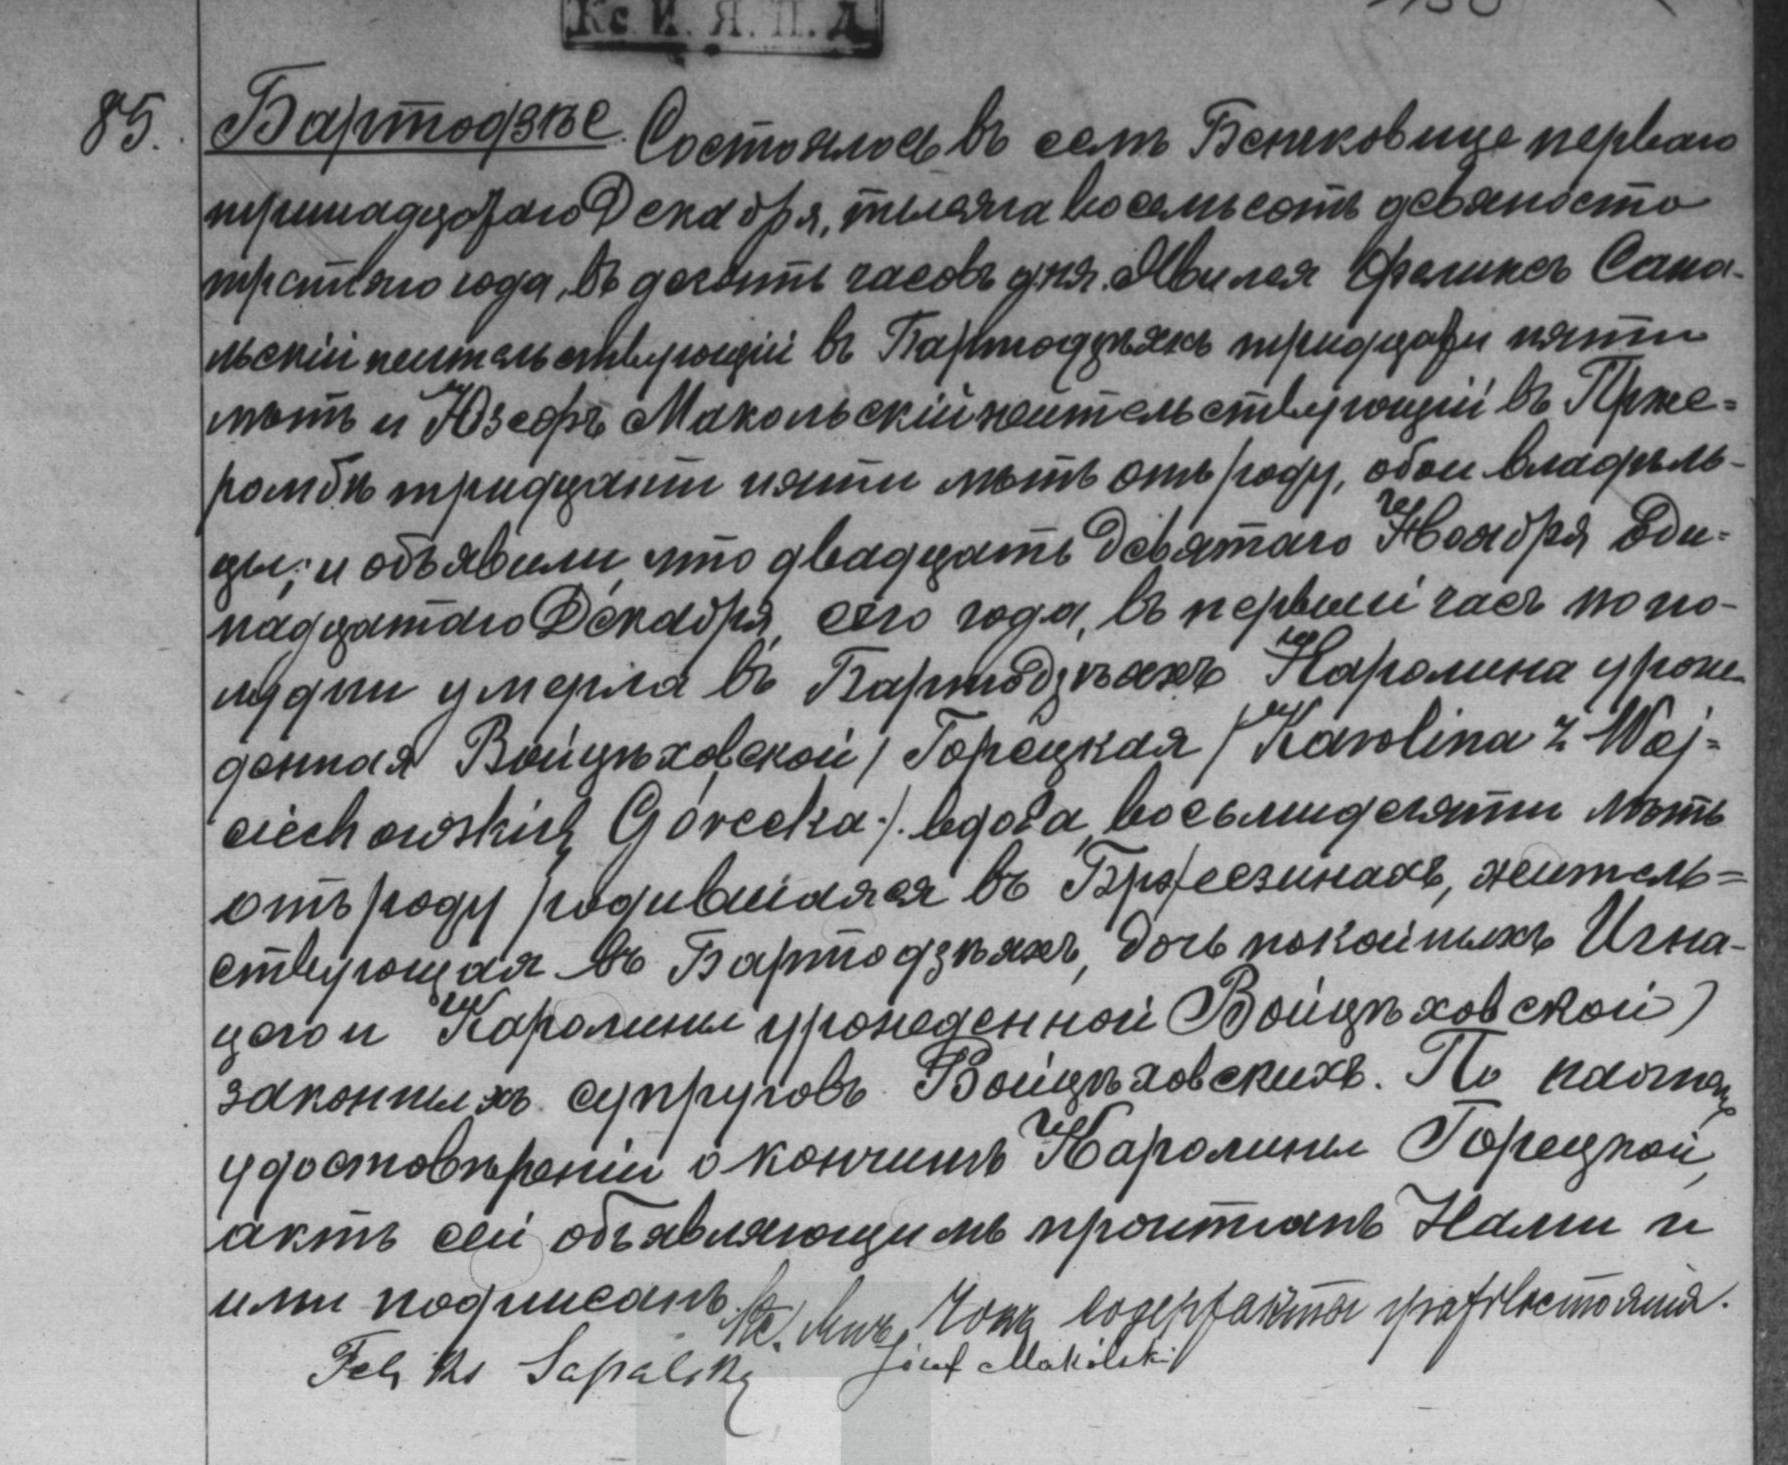 Кс. И. Я. П. Д
85. Бартодзѣе. Состоялось въ селѣ Бѣньковице перваго
тринадцатаго Декабря, тысяча восемьсотъ девяносто
третьяго года, въ десять часовъ дня. Явился Феликсъ Сапа-
льскій жительствующій въ Бартодзѣяхъ тридцати пяти
лѣтъ и Юзефъ Макольскій жительствующій въ Прже-
ромбѣ тридцати пяти лѣтъ отъ роду, обои владѣль-
цы, и объявили, что двадцать девятаго Ноября оди-
надцатаго Декабря, сего года, въ первый часъ попо-
лудни умерла въ Бартодзѣяхъ Каролина урож-
денная Войцѣховской / Горецкая / Karolina z Woj-
ciechowskich Górecka ./. вдова, восьмидесяти лѣтъ
отъ роду родившаяся въ Бржезинахъ, житель=
ствующая въ Бартодзѣяхъ, дочь покойныхъ Игна-
цего и Каролины урожденной Войцѣховской)
законныхъ супруговъ Войцѣховскихъ. По настоящ
удостовѣреніи о кончинѣ Каролины Горецкой,
актъ сей объявляющимъ прочитанъ Нами и
ими подписанъ. Кс. содерж акты гражд состоянія.
Feliks Sapalsky Józef Makólski